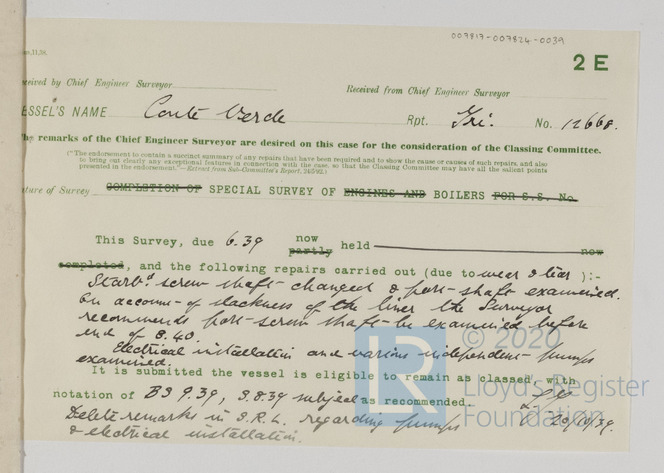 007817-007824-0039
2 E
ceived by Chief Engineer Surveyor
Received from Chief Engineer Surveyor
ESSEL'S NAME Conte Verde Rpt. Tri. No. 12668.
The remarks of the Chief Engineer Surveyor are desired on this case for the consideration of the Classing Committee.
("The endorsement to contain a succinct summary of any repairs that have been required and to show the cause or causes of such repairs, and also
to bring out clearly any exceptional features in connection with the case, so that the Classing Committee may have all the salient points
presented in the endorsement."—Extract from Sub-Committee's Report,
ature of Survey COMPLETION OF SPECIAL SURVEY OF ENGINES AND BOILERS FOR S.S. No.
now
This Survey, due 6.39 partly held now
completed, and the following repairs carried out (due to wear & tear ):-
Starbd screw shaft changed & port shaft examined.
On account of slackness of the liner the Surveyor
recommends port screw shaft be examined before
end of 8.40.
Electrical installation and various independent pumps
examined.
It is submitted the vessel is eligible to remain as classed, with
notation of BS 9.39, S.8.39 subject as recommended.
Delete remarks in S.R.L. regarding pumps
& electrical installation.
20/10/39.
© 2020
LR
Lloyd's Register
Foundation